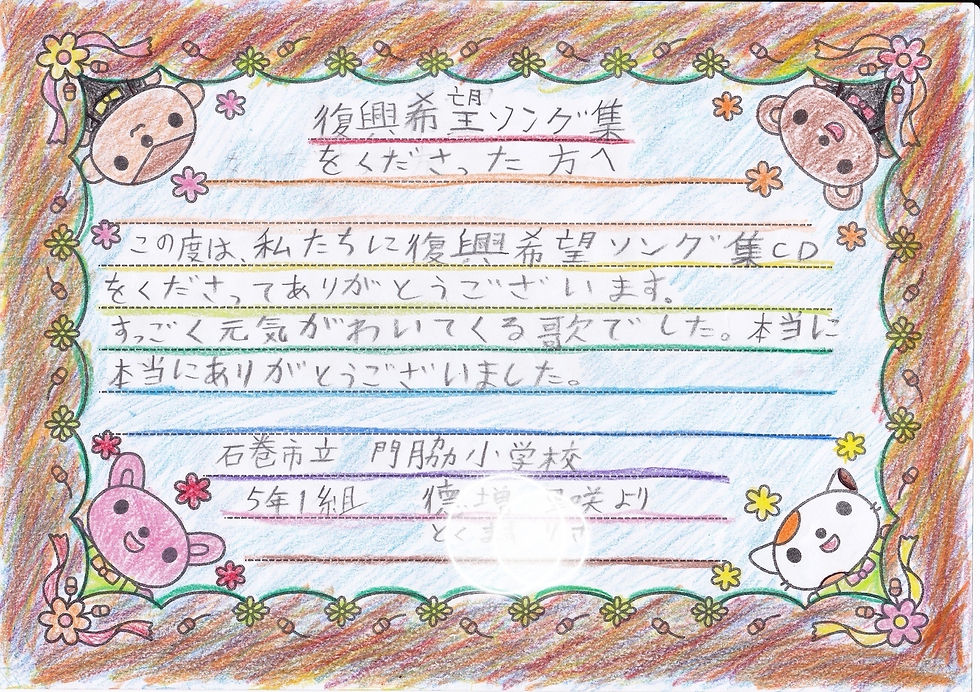 復興希望ソング集
をくださった方へ
この度は、私たちに復興希望ソング集CD
をくださってありがとうございます。
すっごく元気がわいてくる歌でした。本当に
本当にありがとうございました。
石巻市立 門脇小学校
5年1組 徳増 咲より
とくま りさ